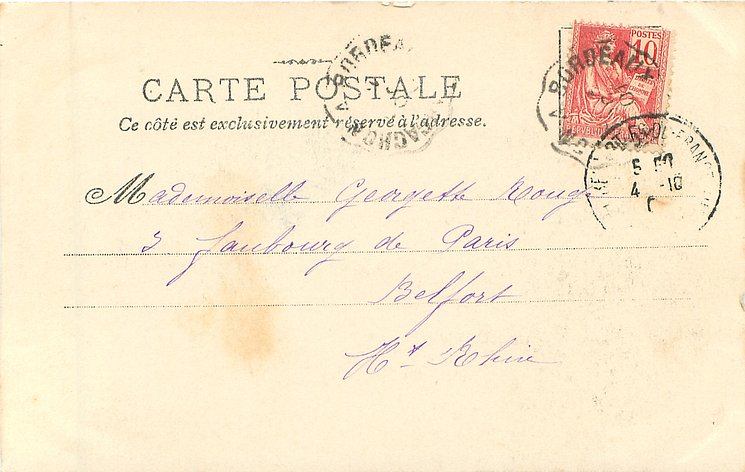 POSTES
10
BORDEAUX
BORDEAUX
CARTE POSTALE
Ce côté est exclusivement réservé à l'adresse.
5
4 -10
Mademoiselle Georgette Rouge
3 faubourg de Paris
Belfort
Ht Rhin